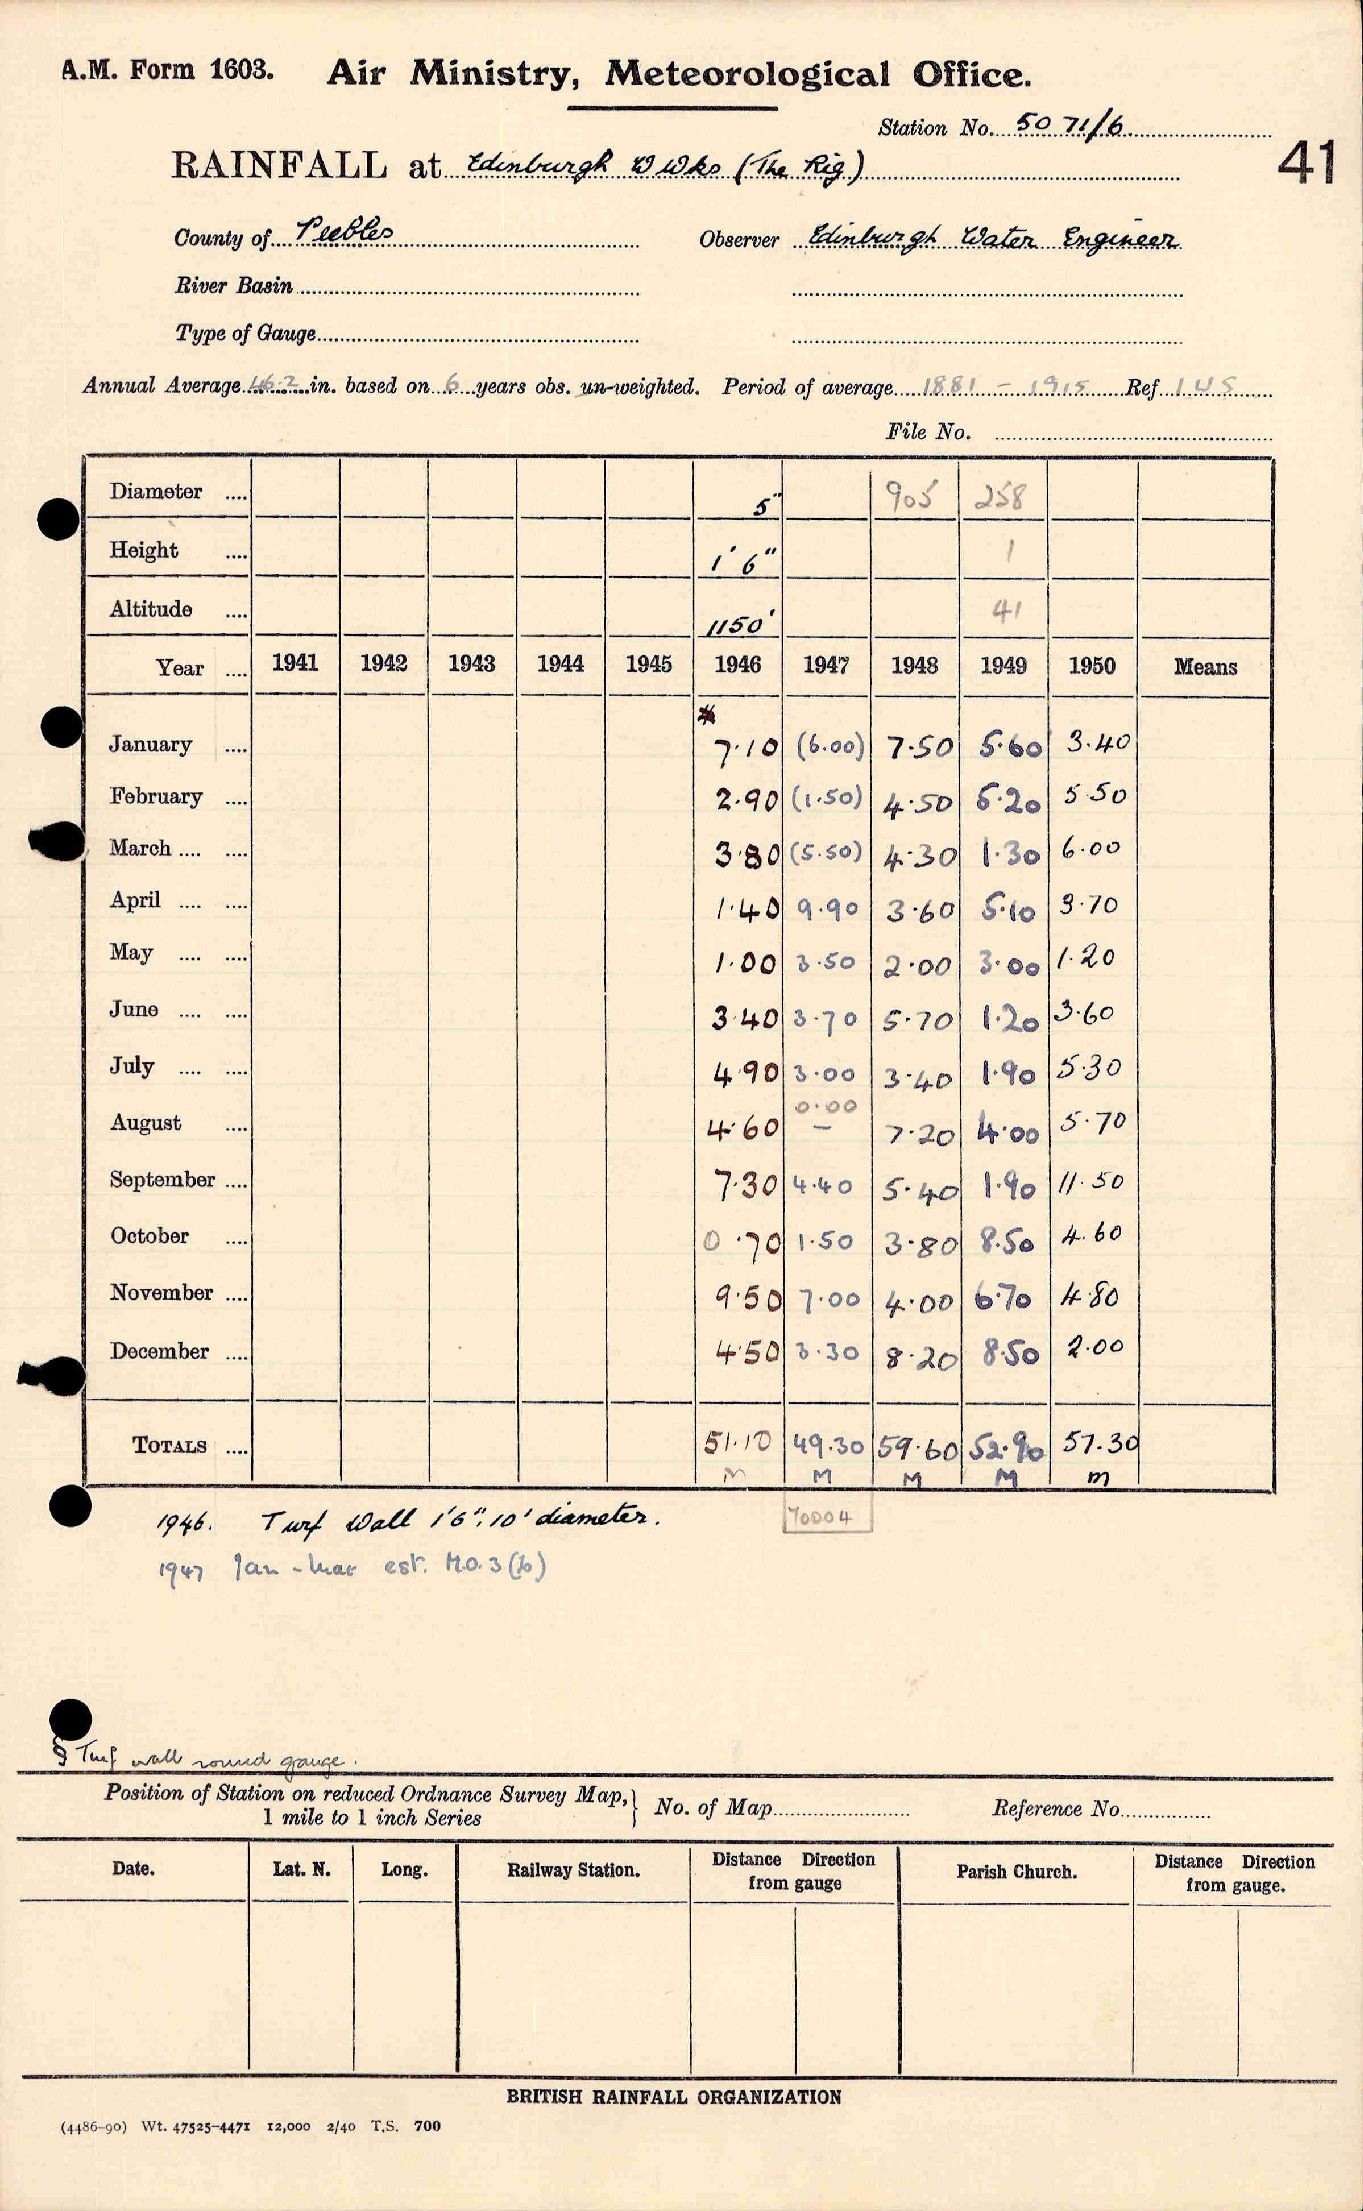 A.M. Form 1603. Air Ministry, Meteorological Office.
Station No. 5071/6
41
RAINFALL at Edinburgh W Wks (The Rig)
County of Peebles Observer Edinburgh Water Engineer
River Basin
Type of Gauge
Annual Average 46.2 in. based on 6 years obs. un-weighted. Period of average 1881 - 1915 Ref
File No.
Diameter .... 5" 905 258
Height .... 1' 6" 1
Altitude .... 1150' 41
Year .... 1941 1942 1943 1944 1945 1946 1947 1948 1949 1950 Means
January .... 7.10 (6.00) 7.50 5.60 3.40
February .... 2.90 (1.50) 4.50 5.20 5.50
March .... .... 3.80 (5.50) 4.30 1.30 6.00
April .... .... 1.40 9.90 3.60 5.10 3.70
May .... .... 1.00 3.50 2.00 3.00 1.20
June .... .... 3.40 3.70 5.70 1.20 3.60
July .... .... 4.90 3.00 3.40 1.90 5.30
0.00
August .... 4.60 – 7.20 4.00 5.70
September .... 7.30 4.40 5.40 1.90 11.50
October .... 0.70 1.50 3.80 8.50 4.60
November .... 9.50 7.00 4.00 6.70 4.80
December .... 4.50 3.30 8.20 8.50 2.00
TOTALS .... 51.10 49.30 59.60 52.90 57.30
M M M M m
1946. Turf Wall 1'6", 10' diameter. 70004
1947 Jan - Mar est. M.O.3(b)
§ Turf wall round gauge.
Position of Station on reduced Ordnance Survey Map, } No. of Map Reference No.
1 mile to 1 inch Series
Date. Lat. N. Long. Railway Station. Distance Direction Parish Church. Distance Direction
from gauge from gauge.
BRITISH RAINFALL ORGANIZATION
(4486-90) Wt. 47525-4471 12,000 2/40 T.S. 700